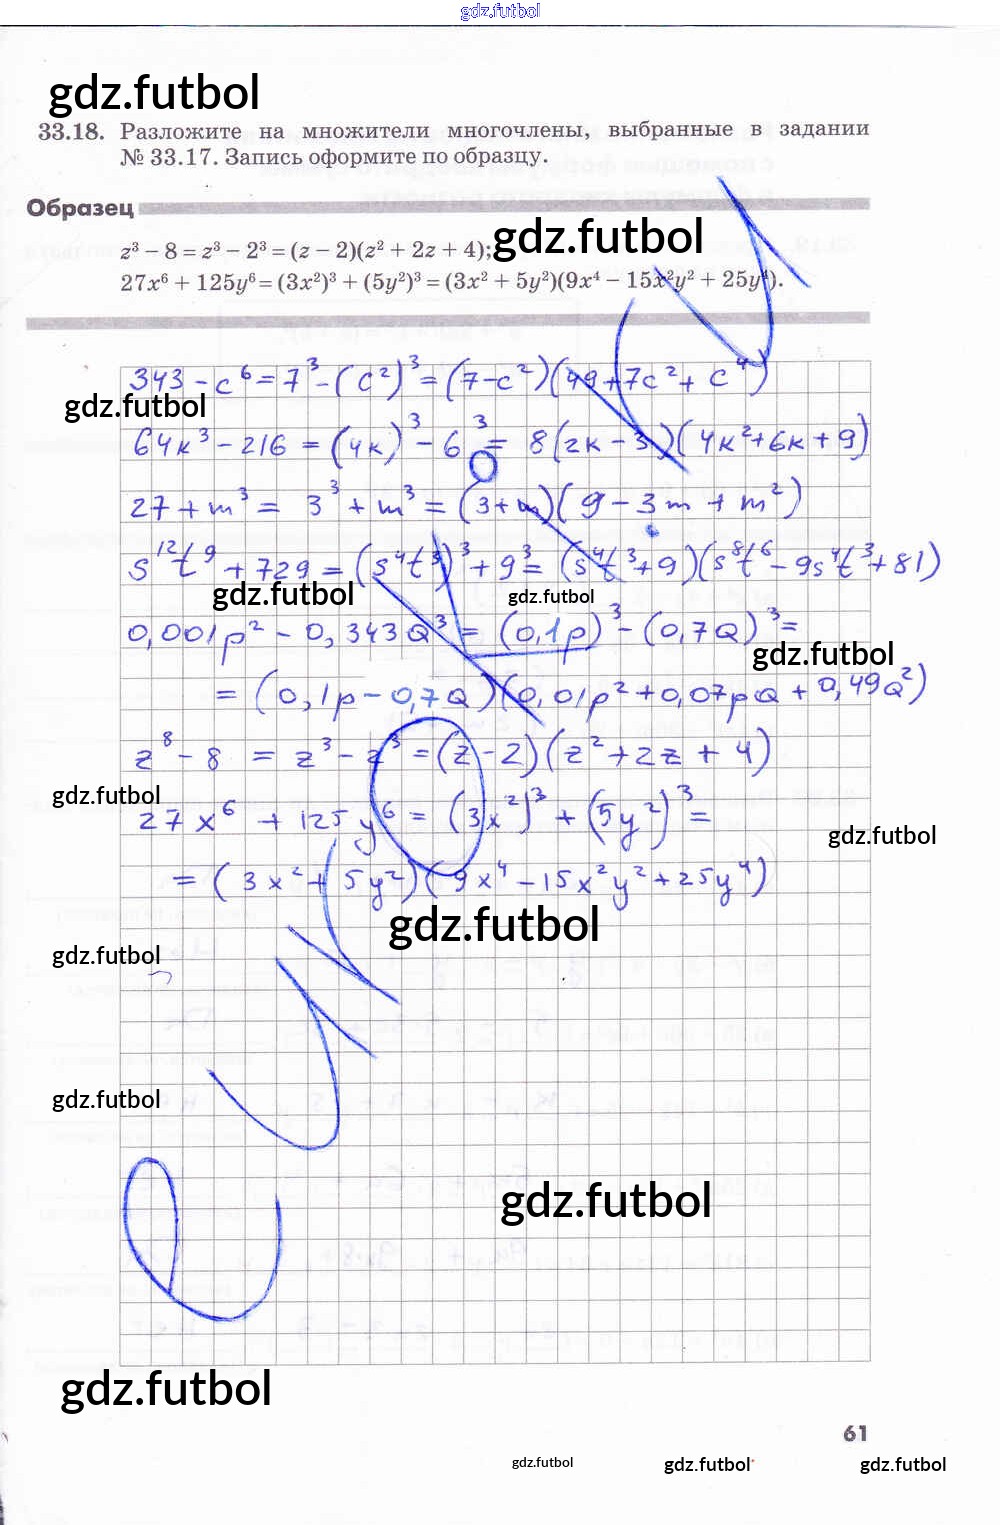 gdz.futbol
gdz.futbol
33.18. Разложите на множители многочлены, выбранные в задании
№ 33.17. Запись оформите по образцу.
Образец
gdz.futbol
z³ − 8 = z³ − 2³ = (z − 2)(z² + 2z + 4);
27x⁶ + 125y⁶ = (3x²)³ + (5y²)³ = (3x² + 5y²)(9x⁴ − 15x²y² + 25y⁴).
343 − c⁶ = 7³ − (c²)³ = (7 − c²)(49 + 7c² + c⁴)
gdz.futbol
64k³ − 216 = (4k)³ − 6³ = 8(2k − 3)(4k² + 6k + 9)
27 + m³ = 3³ + m³ = (3 + m)(9 − 3m + m²)
s¹²t⁹ + 729 = (s⁴t³)³ + 9³ = (s⁴t³ + 9)(s⁸t⁶ − 9s⁴t³ + 81)
gdz.futbol gdz.futbol
0,001p² − 0,343Q³ = (0,1p)³ − (0,7Q)³ =
gdz.futbol
= (0,1p − 0,7Q)(0,01p² + 0,07pQ + 0,49Q²)
z⁸ − 8 = z³ − z³ = (z − 2)(z² + 2z + 4)
gdz.futbol
27x⁶ + 125y⁶ = (3x²)³ + (5y²)³ =
gdz.futbol
= (3x² + 5y²)(9x⁴ − 15x²y² + 25y⁴)
gdz.futbol
gdz.futbol
gdz.futbol
gdz.futbol
gdz.futbol
61
gdz.futbol gdz.futbol gdz.futbol